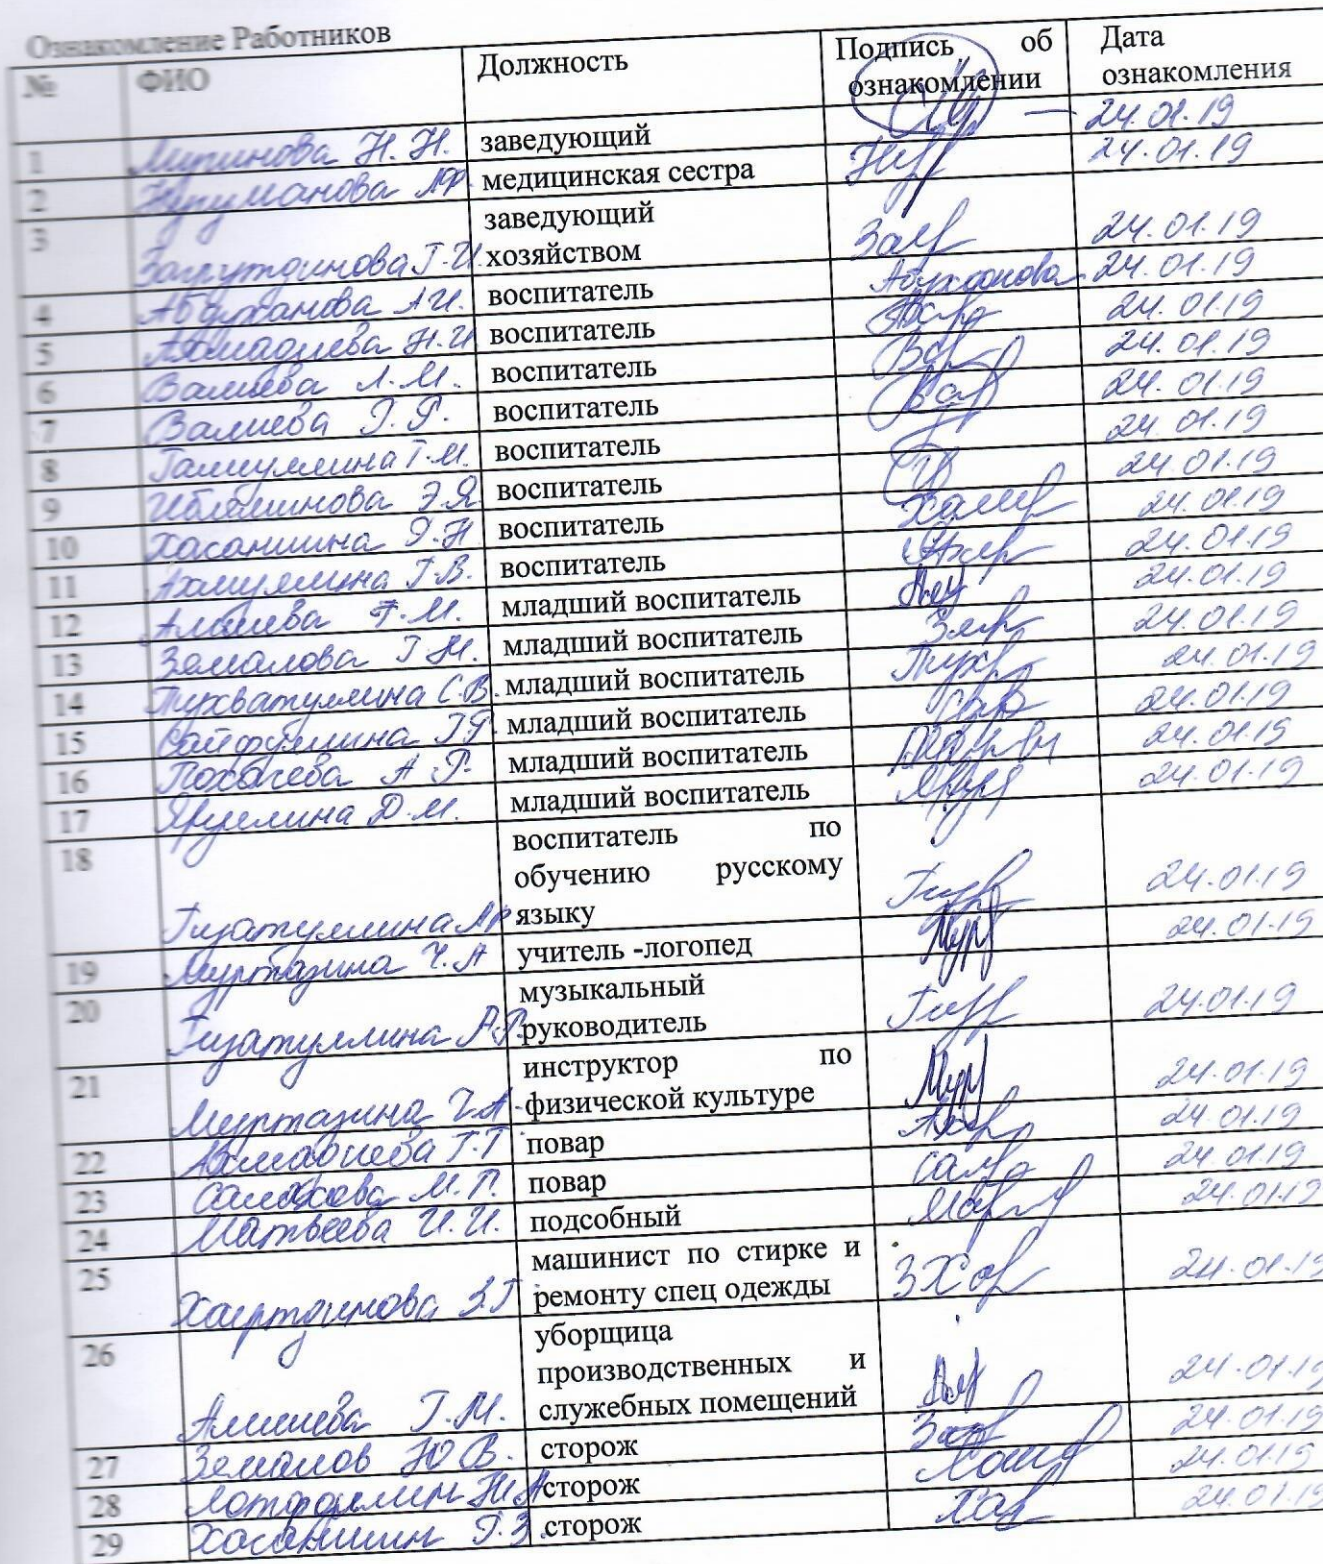 Ознакомление Работников
№ ФИО Должность Подпись об ознакомлении Дата ознакомления
1 Н.Н. заведующий 24.01.19
2 медицинская сестра 24.01.19
3 Загрутдинова Г.И. заведующий хозяйством Заг 24.01.19
4 Абдулханова А.И. воспитатель 24.01.19
5 Ахмадиева Н.И воспитатель 24.01.19
6 Валиева Л.М. воспитатель Вал 24.01.19
7 Валиева Э.Р. воспитатель Вал 24.01.19
8 Галиуллина Г.М. воспитатель 24.01.19
9 Э.Я воспитатель 24.01.19
10 Хасаншина Э.Н. воспитатель 24.01.19
11 Г.В. воспитатель 24.01.19
12 Алишева Г.М. младший воспитатель 24.01.19
13 Земалова Г.Н. младший воспитатель Зем 24.01.19
14 Тухватуллина С.В. младший воспитатель Тухв 24.01.19
15 Сайфуллина Г.Р. младший воспитатель 24.01.19
16 А.Р. младший воспитатель 24.01.19
17 Яруллина Д.М. младший воспитатель 24.01.19
18 Гизатуллина А.Р. воспитатель по обучению русскому языку Гизат 24.01.19
19 Муртазина Ч.А учитель -логопед Мурт 24.01.19
20 Гизатуллина А.Р. музыкальный руководитель Гиз 24.01.19
21 Муртазина Ч.А. инструктор по физической культуре Мурт 24.01.19
22 Ахмадиева Г.Г. повар 24.01.19
23 Салахова М.Г. повар Сал 24.01.19
24 Матвеева И.И. подсобный Мат 24.01.19
25 Хаиртдинова З.Г машинист по стирке и ремонту спец одежды 24.01.19
26 Алишева Г.М. уборщица производственных и служебных помещений 24.01.19
27 Земалов Ю.В. сторож 24.01.19
28 Лотфуллин Н.А сторож 24.01.19
29 Хасаншин Г.З. сторож Хас 24.01.19